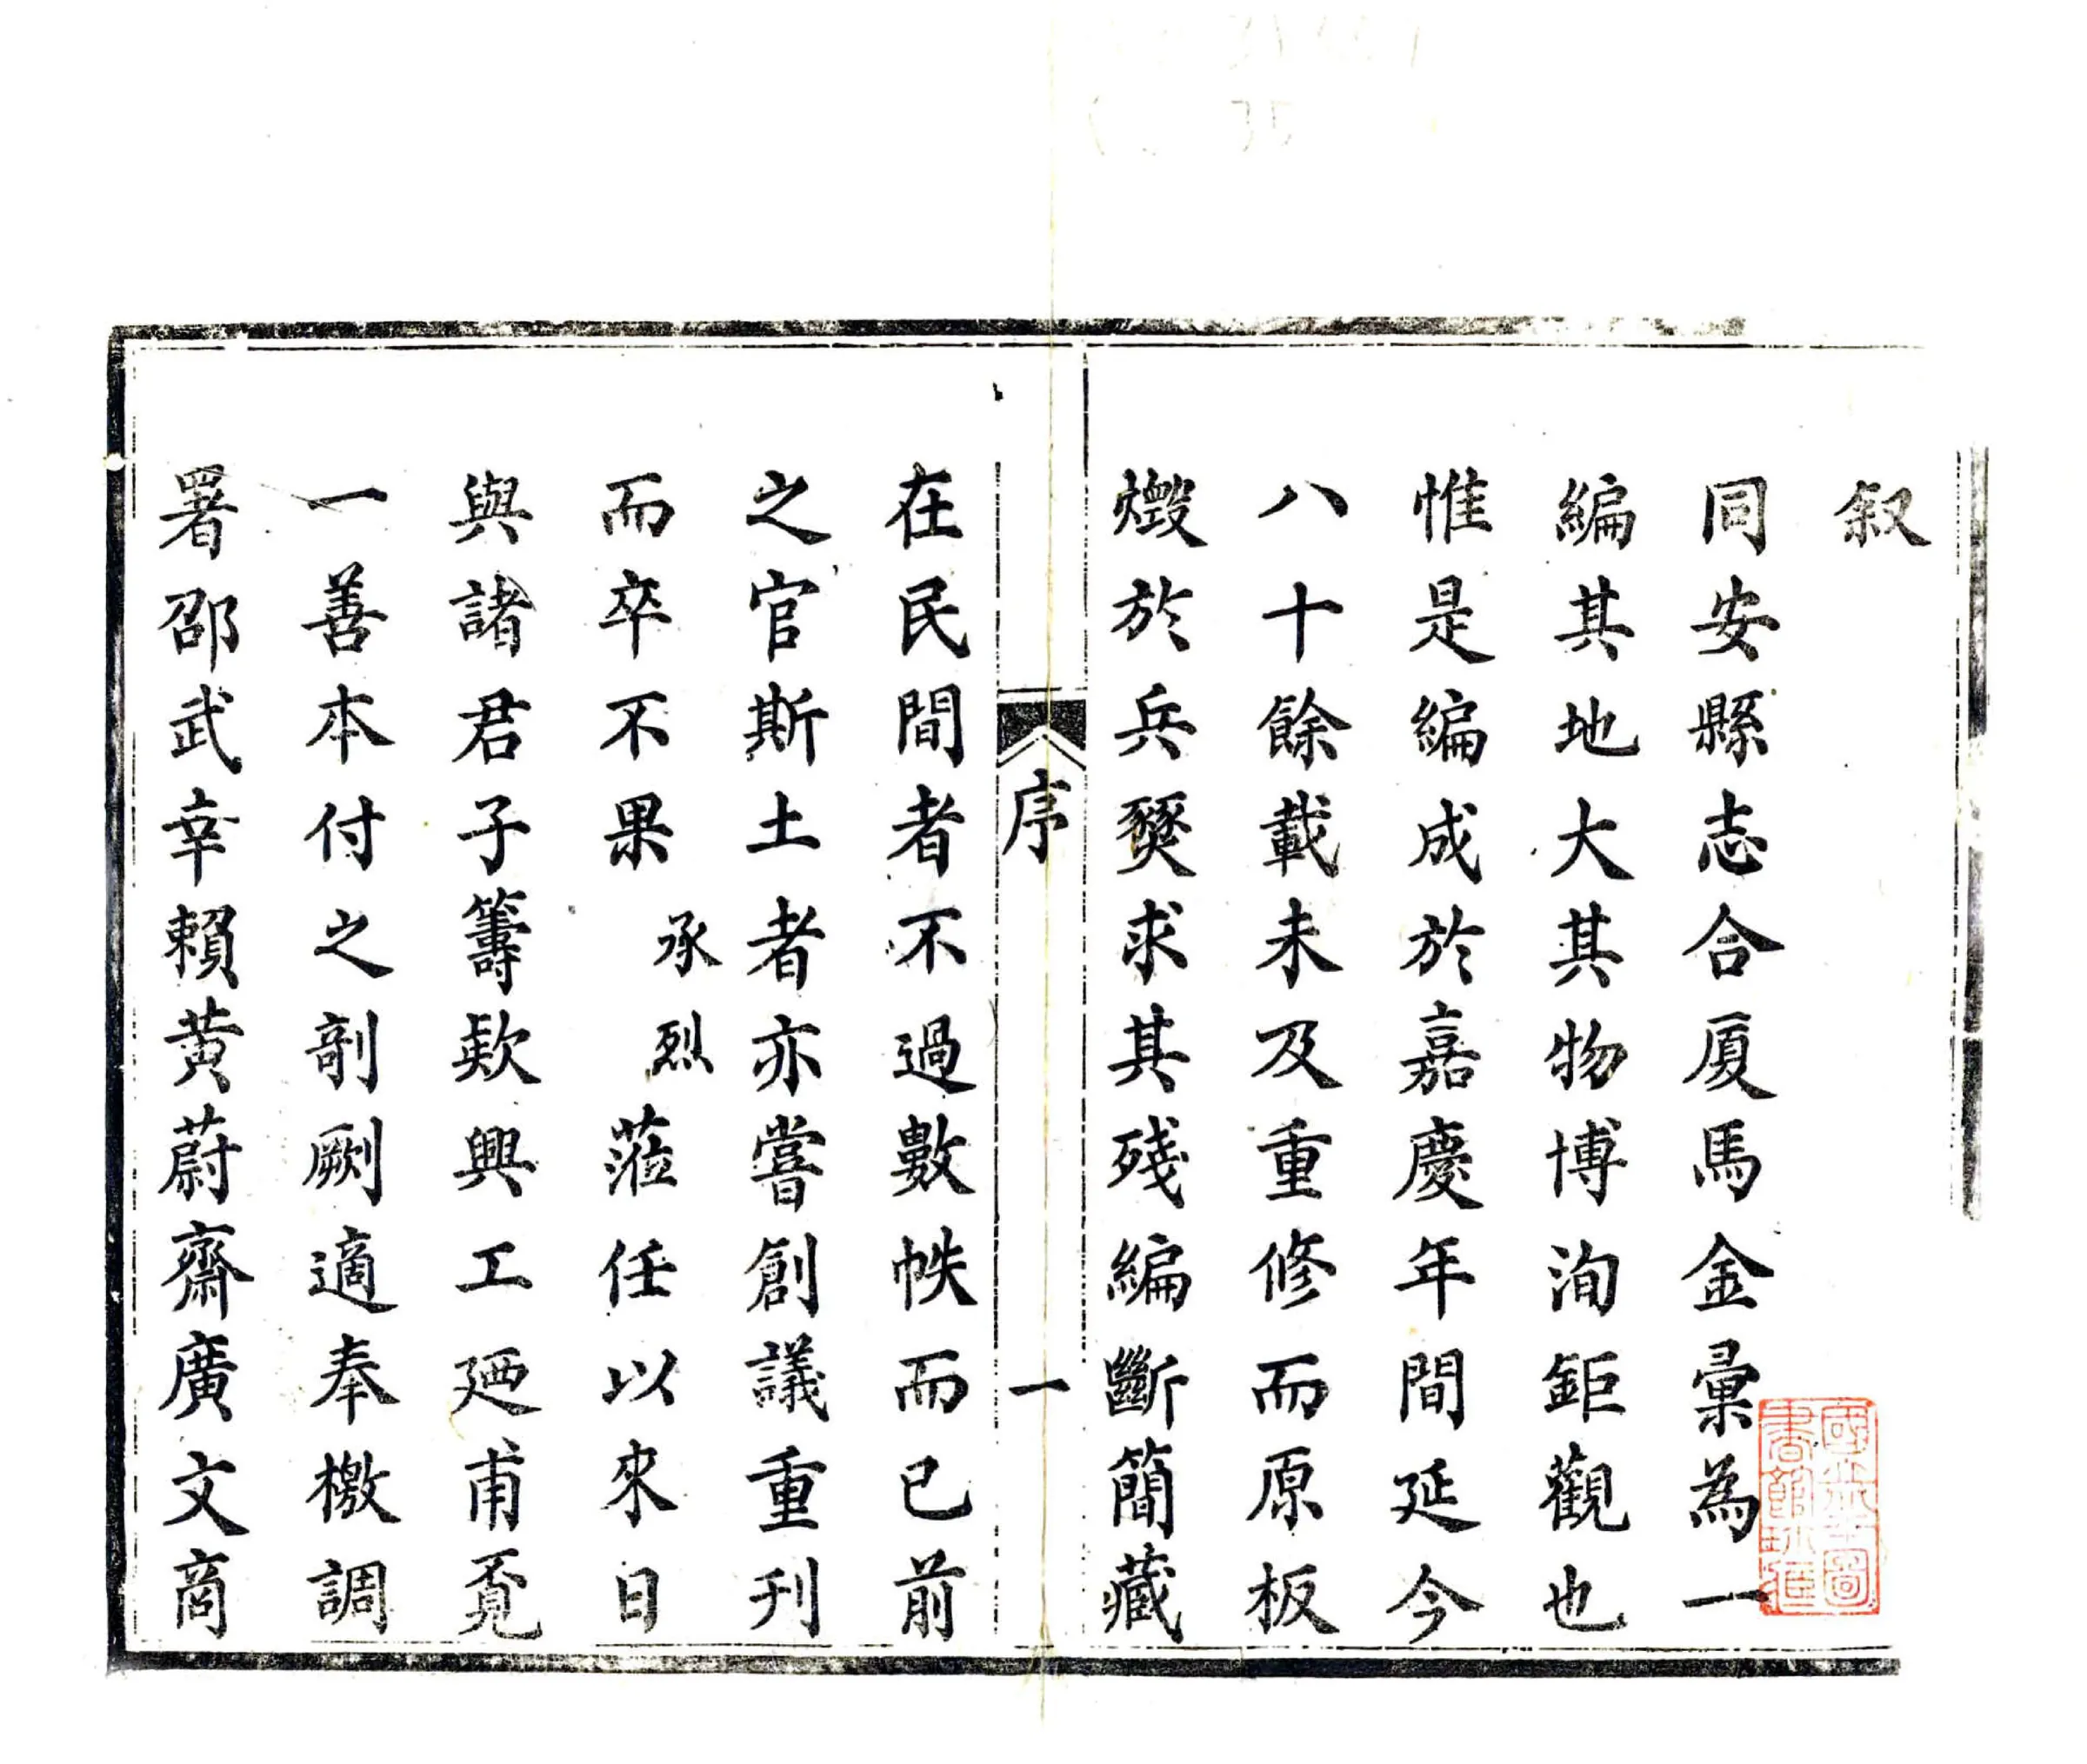 叙
同安縣志合厦馬金彙為一
編其地大其物博洵鉅觀也
惟是編成於嘉慶年間延今
八十餘載未及重修而原板
燬於兵燹求其殘編斷簡藏
序 一
在民間者不過數帙而已前
之官斯土者亦嘗創議重刊
而卒不果承烈蒞任以來日
與諸君子籌欵興工廼甫覔
一善本付之剞劂適奉檄調
署邵武幸賴黃蔚齋廣文商